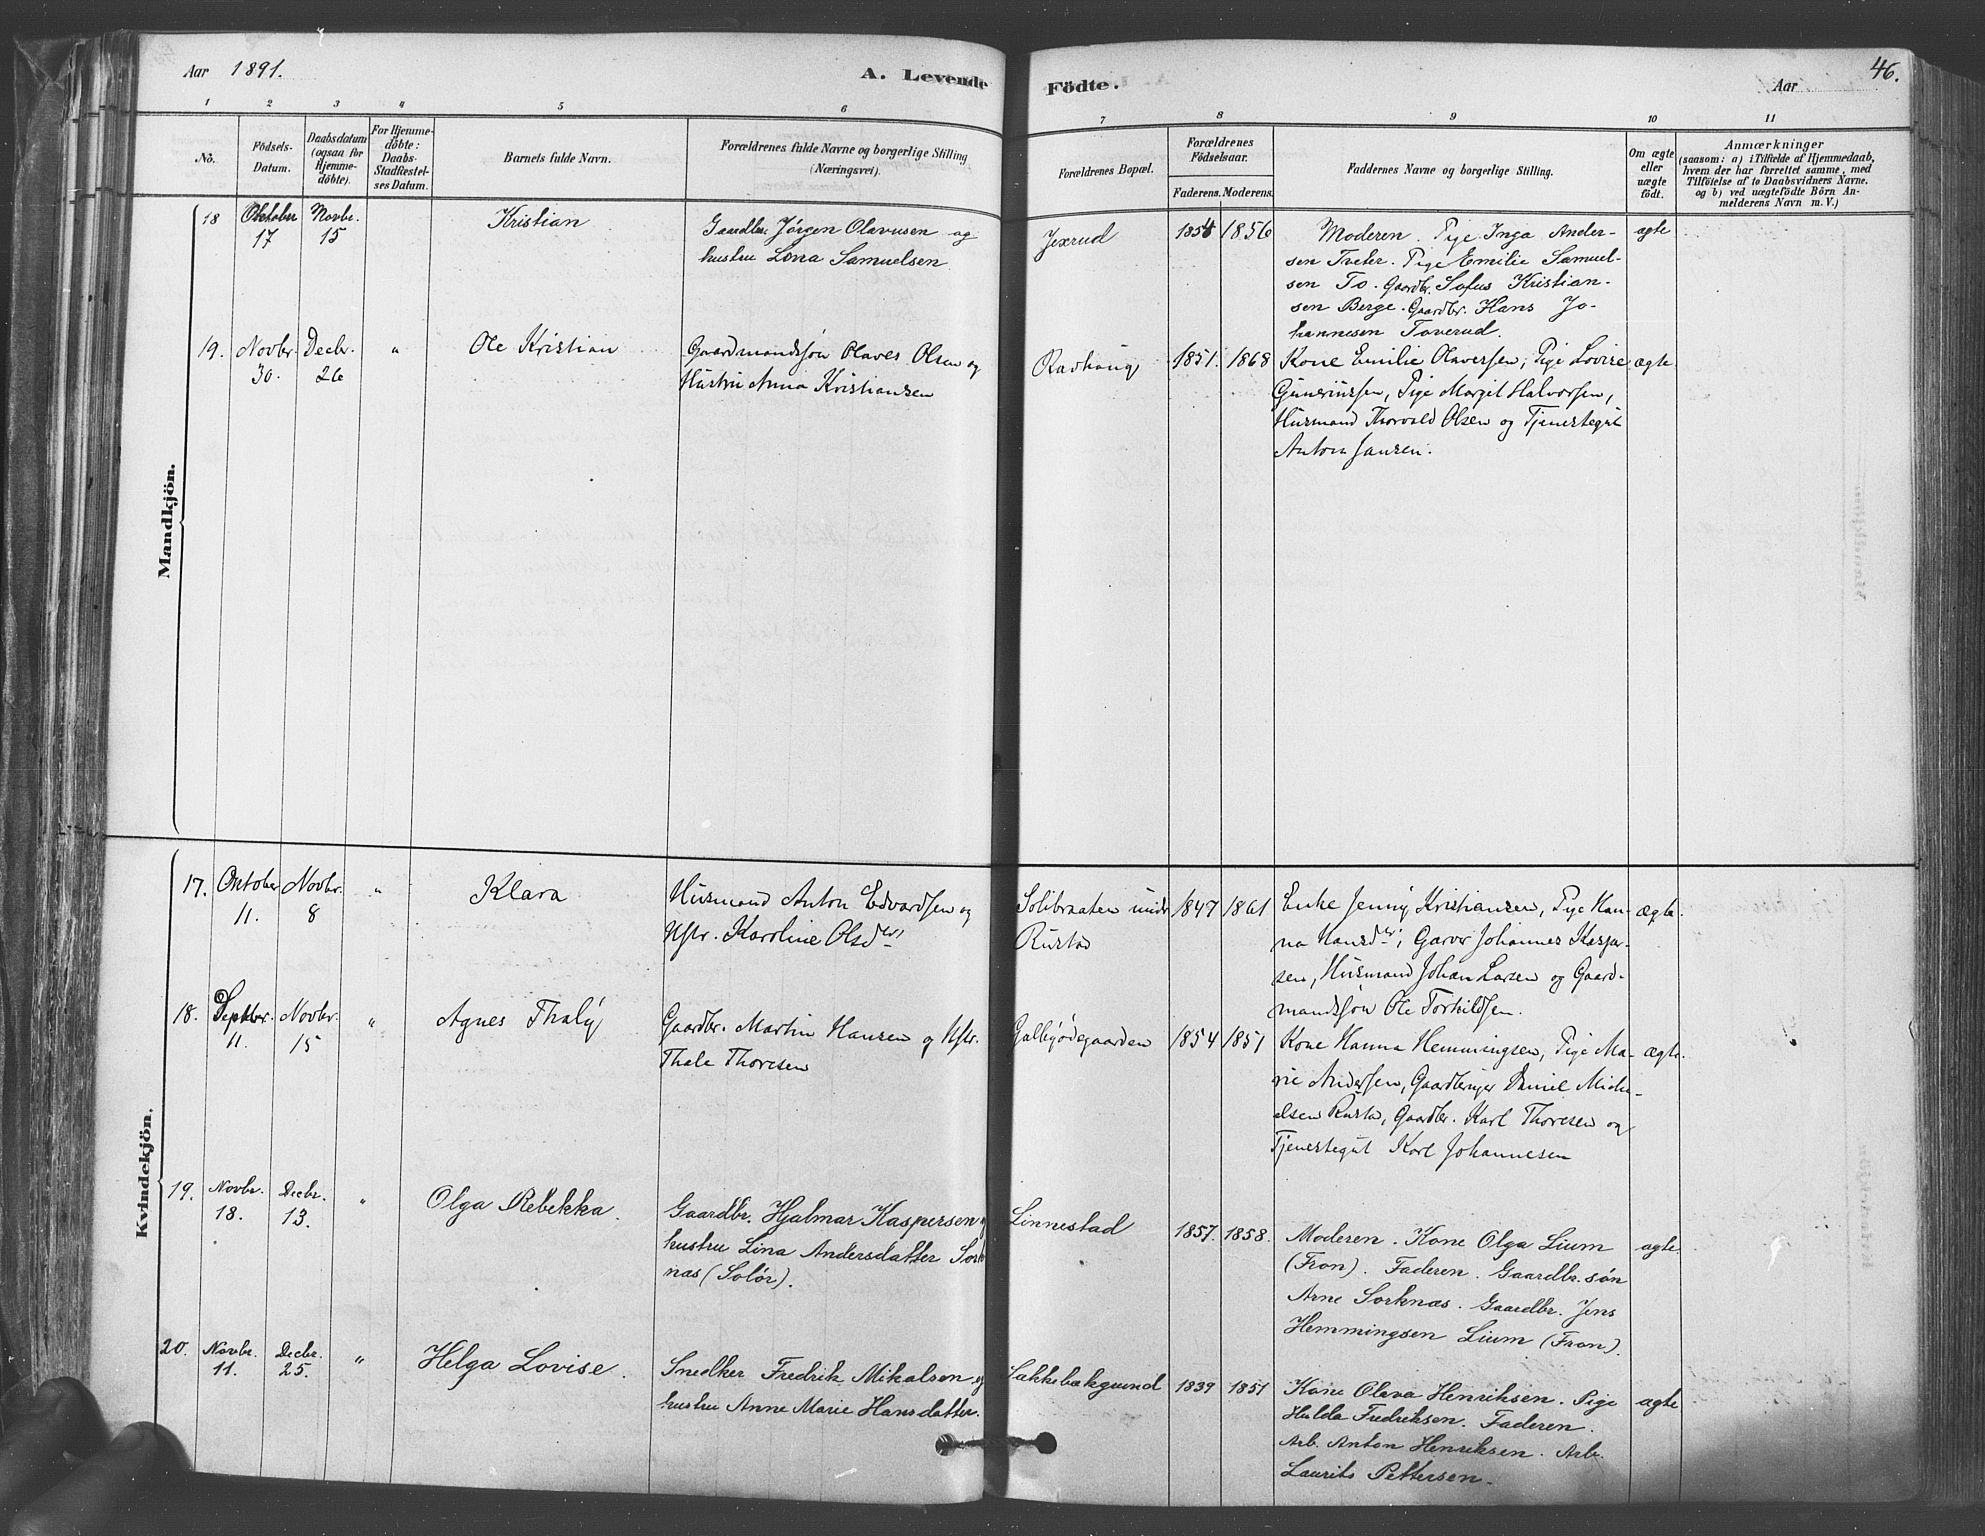 Aar 1891.
A. Levende
Födte.
Aar
46.
1 2 3 4 5 6 7 8 9 10 11
No.
Födsels-
Datum.
Daabsdatum
(ogsaa for
Hjemme-
döbte).
For Hjemme-
döbte:
Daabs-
Stadfæstel-
ses Datum.
Barnets fulde Navn.
Forældrenes fulde Navne og borgerlige Stilling
(Næringsvei).
Forældrenes Bopæl.
Forældrenes
Födselsaar.
Faderens. Moderens.
Faddernes Navne og borgerlige Stilling.
Om ægte
eller
uægte
födt.
Anmærkninger
(saasom: a) i Tilfælde af Hjemmedaab,
hvem der har forrettet samme, med
Tilföielse af to Daabsvidners Navne.
og b) ved uægtefödte Börn An-
melderens Navn m. V.)
Mandkjön.
18
Oktober
17
Novbr.
15
Kristian
Gaardbr. Jörgen Olavusen og
hustru Lina Samuelsen
Jexrud
1854 1856
Moderen. Pige Inga Ander-
sen Tveter. Pige Emilie Samuel-
sen To. Gaardbr. Sofus Kristian-
sen Berge. Gaardbr. Hans Jo-
hannesen Taverud.
ægte
19.
Novbr.
30.
Decbr.
26
"
Ole Kristian
Gaardmandssøn Olaves Olsen og
Hustru Anna Kristiansen
Ravhaug
1851. 1868
Kone Emilie Olaversen, Pige Lovise
Guneriussen, Pige Margit Halvorsen,
Husmand Thorvald Olsen og Tjenestegut
Anton Jansen.
ægte
Kvindekjön.
17.
Oktober
11.
Novbr.
8
"
Klara
Husmand Anton Edvardsen og
Hstr. Karoline Olsdtr
Solibraaten under
Rustad
1847 1861
Enke Jenny Kristiansen, Pige Han-
na Hansdtr, Garver Johannes Kasper-
sen, Husmand Johan Larsen og Gaard-
mandssøn Ole Torkildsen.
ægte.
18.
Septbr.
11.
Novbr.
15
"
Agnes Thaly
Gaardbr. Martin Hansen og Hstr.
Thale Thoresen
Galbyødegaarden
1854 1851
Kone Hanna Hemmingsen, Pige Ma-
rie Andersen, Gaardbruger Daniel Mich-
elsen Rustad, Gaardbr. Karl Thoresen og
Tjenestegut Karl Johannesen
ægte.
19.
Novbr.
18.
Decbr.
13.
"
Olga Rebekka.
Gaardbr. Hjalmar Kaspersen og
hustru Lina Andersdatter Sork-
nas (Solør).
Linnestad
1857. 1858.
Moderen. Kone Olga Lium
(Fron). Faderen. Gaardbr. søn
Arne Sorknas. Gaardbr. Jens
Hemmingsen Lium (Fron).
ægte
20.
Novbr.
11.
Decbr.
25.
"
Helga Lovise.
Snedker Fredrik Mikalsen og
hustru Anne Marie Hansdatter.
Sækkebækgrund
1839 1851
Kone Oleva Henriksen. Pige
Hulda Fredriksen. Faderen.
Arb. Anton Henriksen. Arb.
Laurits Pettersen.
ægte